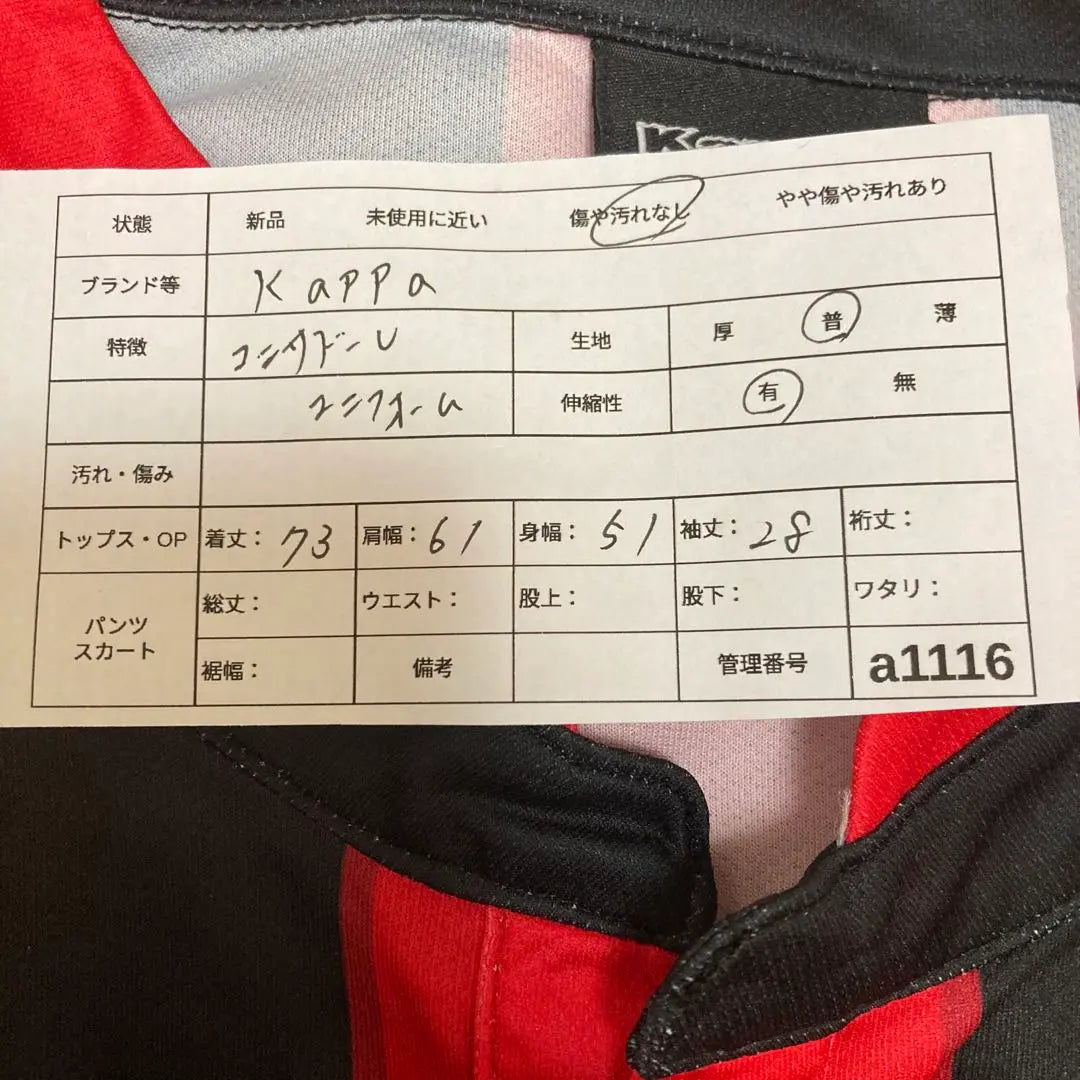 状態 新品 未使用に近い 傷や汚れなし やや傷や汚れあり
ブランド等 Kappa
特徴 コンサドーレ 生地 厚 普 薄
ユニフォーム 伸縮性 有 無
汚れ・傷み
トップス・OP 着丈: 73 肩幅: 61 身幅: 51 袖丈: 28 裄丈:
パンツ スカート 総丈: ウエスト: 股上: 股下: ワタリ:
裾幅: 備考 管理番号 a1116